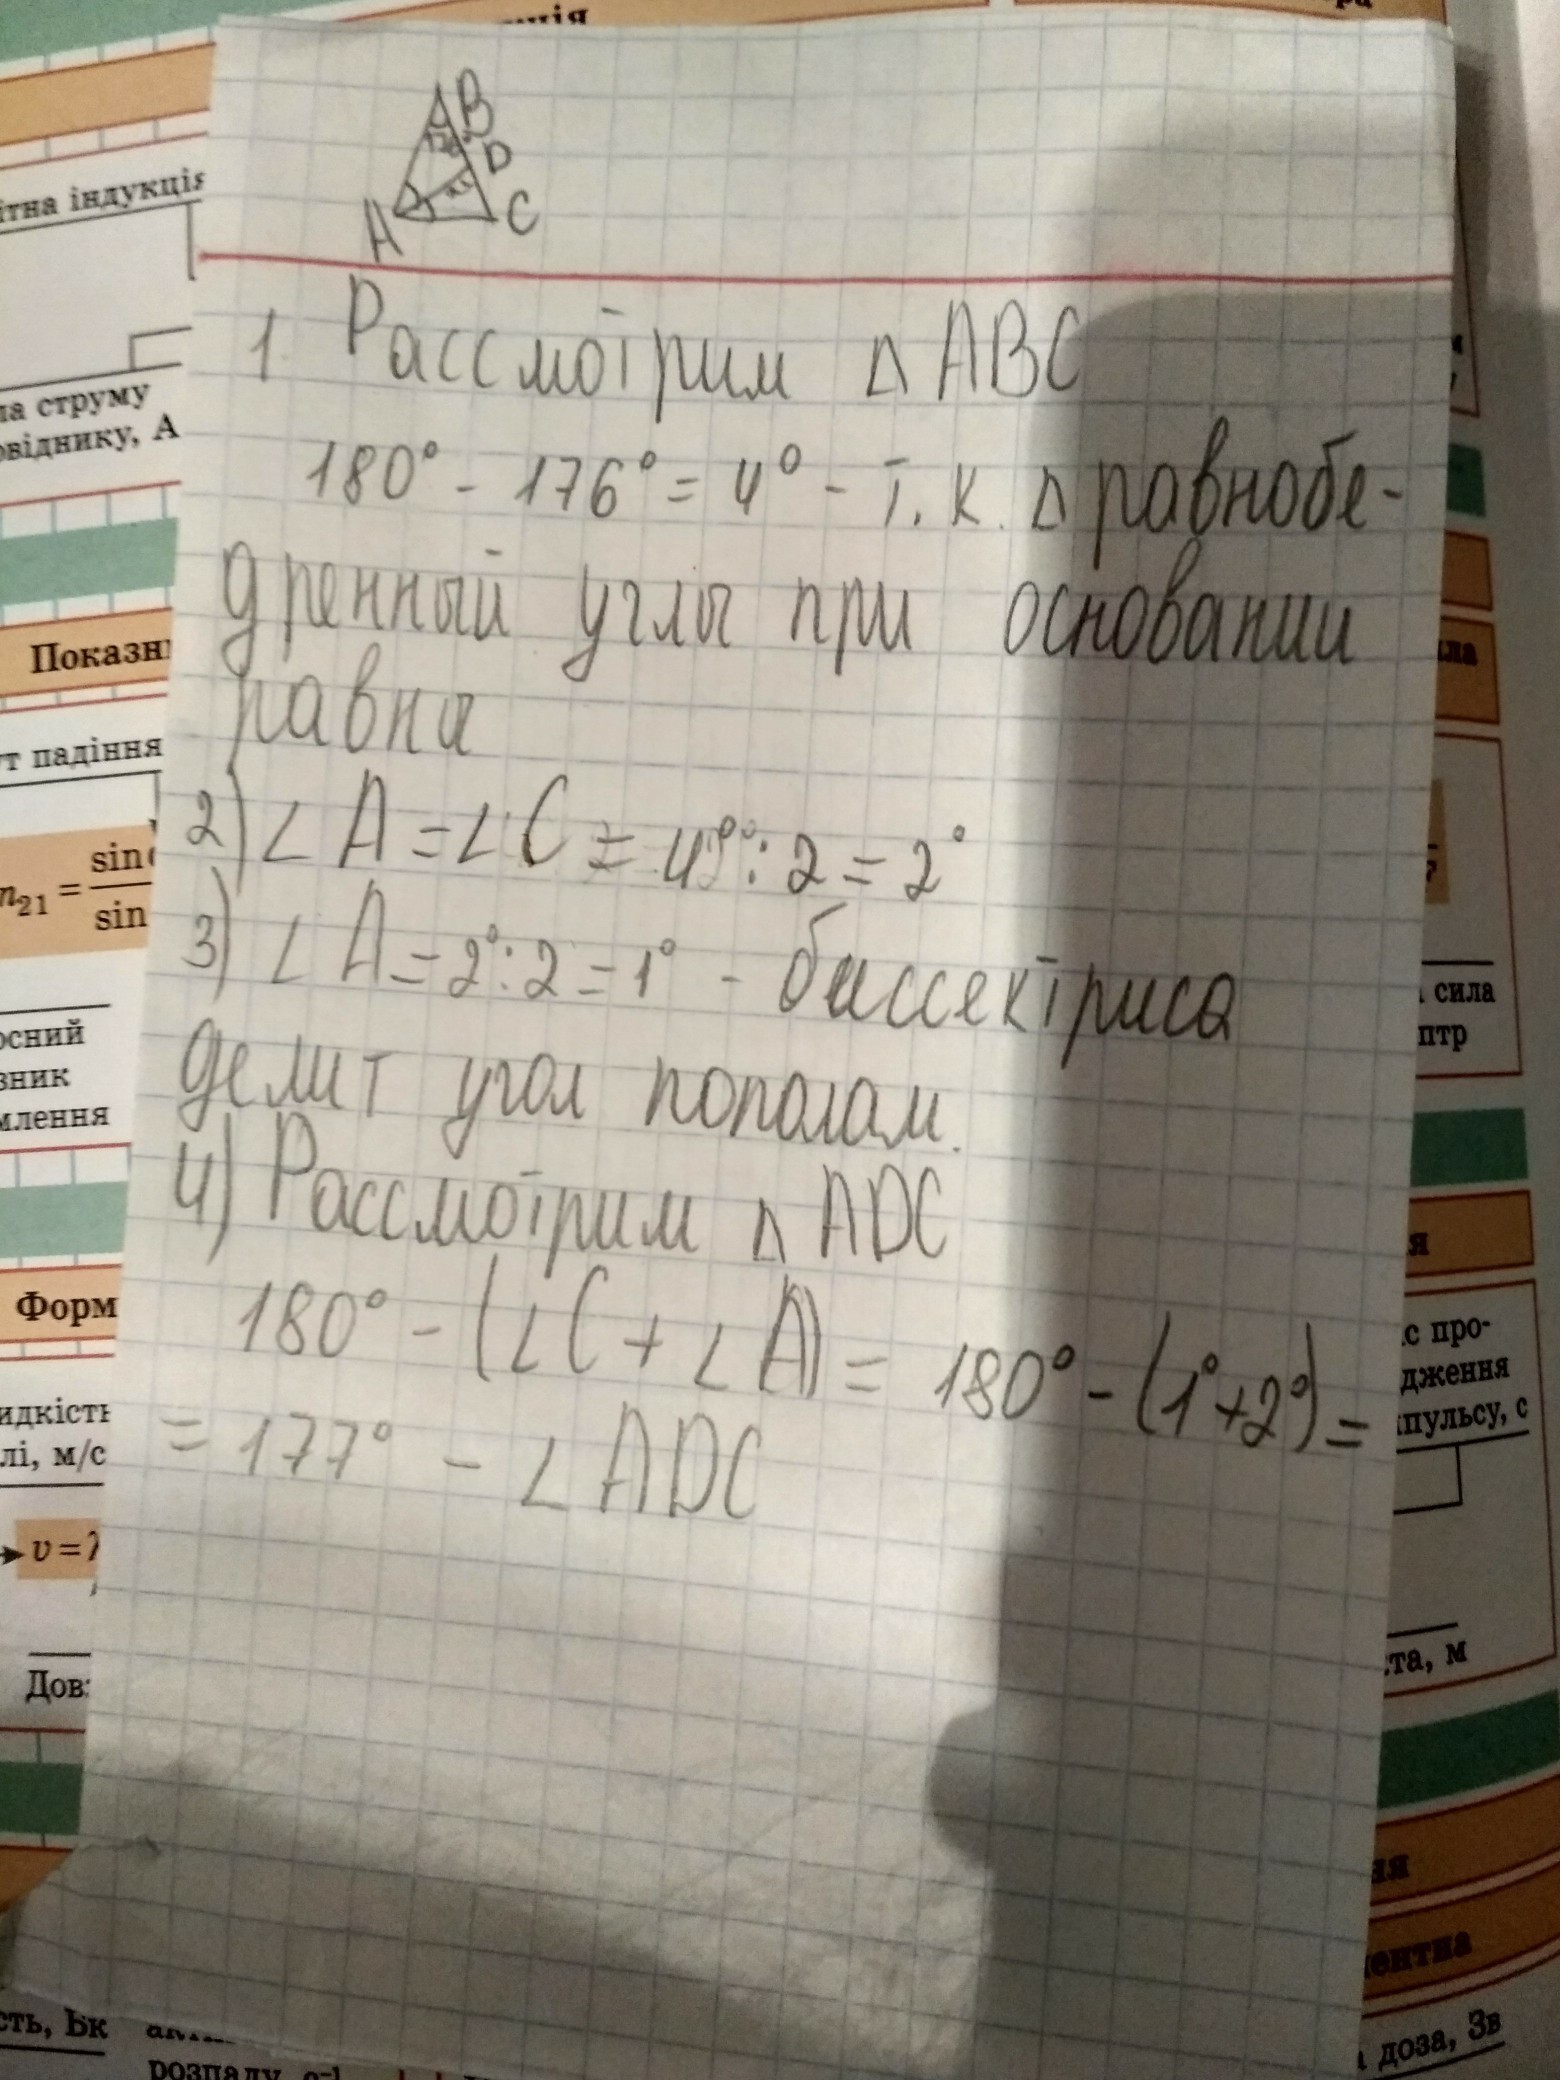 ція
ітна індукція
ла струму
овіднику, А
Показн
ут падіння
n21 = sin
sin
осний
зник
млення
Форм
идкість
лі, м/с
v = λ
Дов
сть, Бк
розпаду, с-1
B
D
A
C
1. Рассмотрим △ ABC
180° - 176° = 4° - т. к. △ равнобе-
дренный углы при основании
равны
2) ∠ A = ∠ C = 4° : 2 = 2°
3) ∠ A = 2° : 2 = 1° - биссектриса
делит угол пополам.
4) Рассмотрим △ ADC
180° - (∠ C + ∠ A) = 180° - (1° + 2°) =
= 177° - ∠ ADC
ила
сила
птр
с про-
дження
мпульсу, с
та, м
ня
ентна
доза, Зв